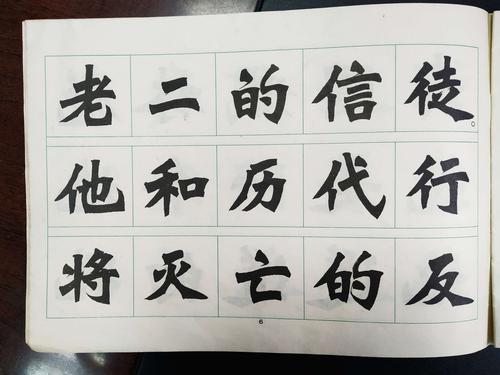 老二的信徒。
他和历代行
将灭亡的反
6